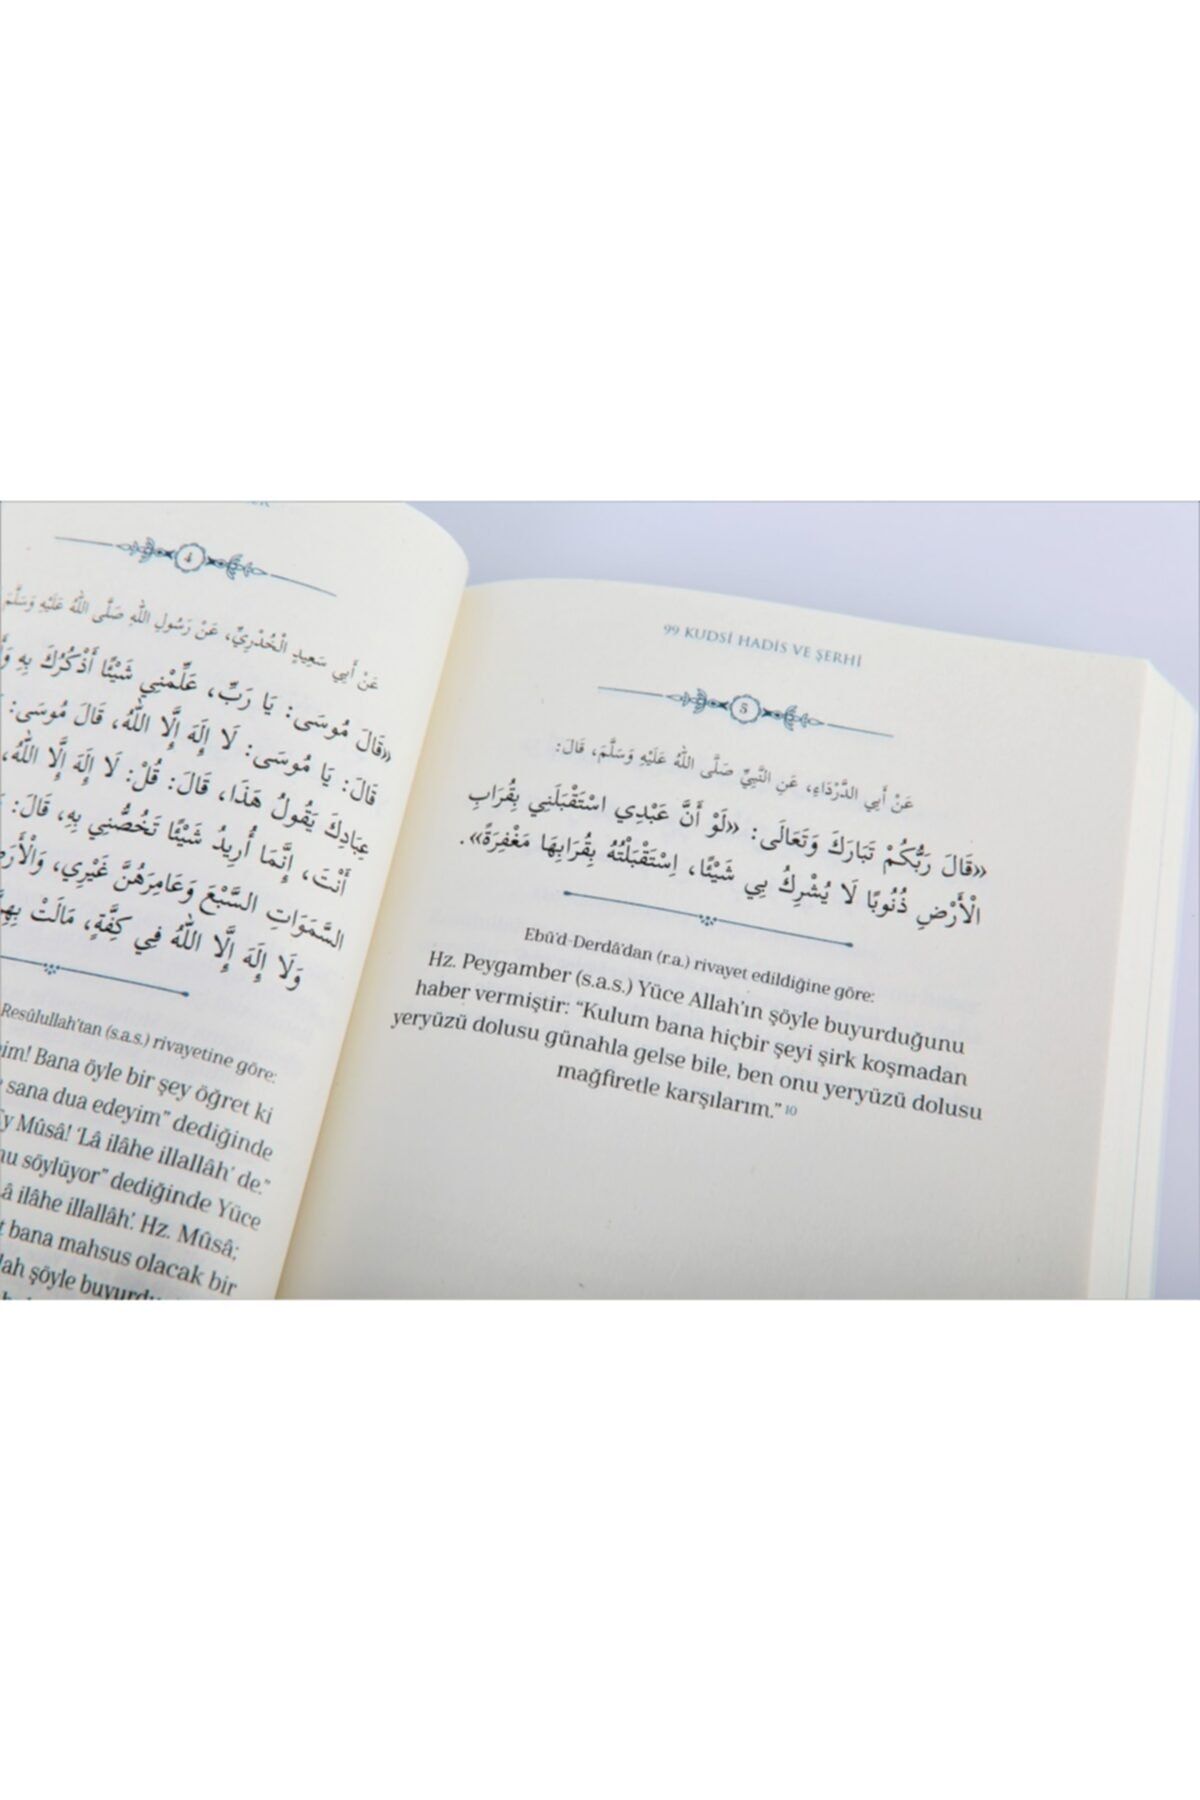 4
عَنْ أَبِي سَعِيدٍ الْخُدْرِيِّ، عَنْ رَسُولِ اللّٰهِ صَلَّى اللّٰهُ عَلَيْهِ وَسَلَّمَ
«قَالَ مُوسَى: يَا رَبِّ، عَلِّمْنِي شَيْئًا أَذْكُرُكَ بِهِ
قَالَ: يَا مُوسَى: لَا إِلَهَ إِلَّا اللّٰهُ، قَالَ مُوسَى:
عِبَادِكَ يَقُولُ هَذَا، قَالَ: قُلْ: لَا إِلَهَ إِلَّا اللّٰهُ،
أَنْتَ، إِنَّمَا أُرِيدُ شَيْئًا تَخُصُّنِي بِهِ، قَالَ:
السَّمَوَاتِ السَّبْعَ وَعَامِرَهُنَّ غَيْرِي،
وَلَا إِلَهَ إِلَّا اللّٰهُ فِي كِفَّةٍ، مَالَتْ
Resûlullah'tan (s.a.s.) rivayetine göre:
Bana öyle bir şey öğret ki
sana dua edeyim” dediğinde
Mûsâ! ‘Lâ ilâhe illallâh’ de.”
söylüyor” dediğinde Yüce
ilâhe illallâh’. Hz. Mûsâ;
bana mahsus olacak bir
şöyle
99 KUDSÎ HADİS VE ŞERHİ
5
عَنْ أَبِي الدَّرْدَاءِ، عَنِ النَّبِيِّ صَلَّى اللّٰهُ عَلَيْهِ وَسَلَّمَ، قَالَ:
«قَالَ رَبُّكُمْ تَبَارَكَ وَتَعَالَى: «لَوْ أَنَّ عَبْدِي اسْتَقْبَلَنِي بِقُرَابِ
الْأَرْضِ ذُنُوبًا لَا يُشْرِكُ بِي شَيْئًا، اِسْتَقْبَلْتُهُ بِقُرَابِهَا مَغْفِرَةً».
Ebü'd-Derdâ'dan (r.a.) rivayet edildiğine göre:
Hz. Peygamber (s.a.s.) Yüce Allah'ın şöyle buyurduğunu
haber vermiştir: “Kulum bana hiçbir şeyi şirk koşmadan
yeryüzü dolusu günahla gelse bile, ben onu yeryüzü dolusu
mağfiretle karşılarım.” 10